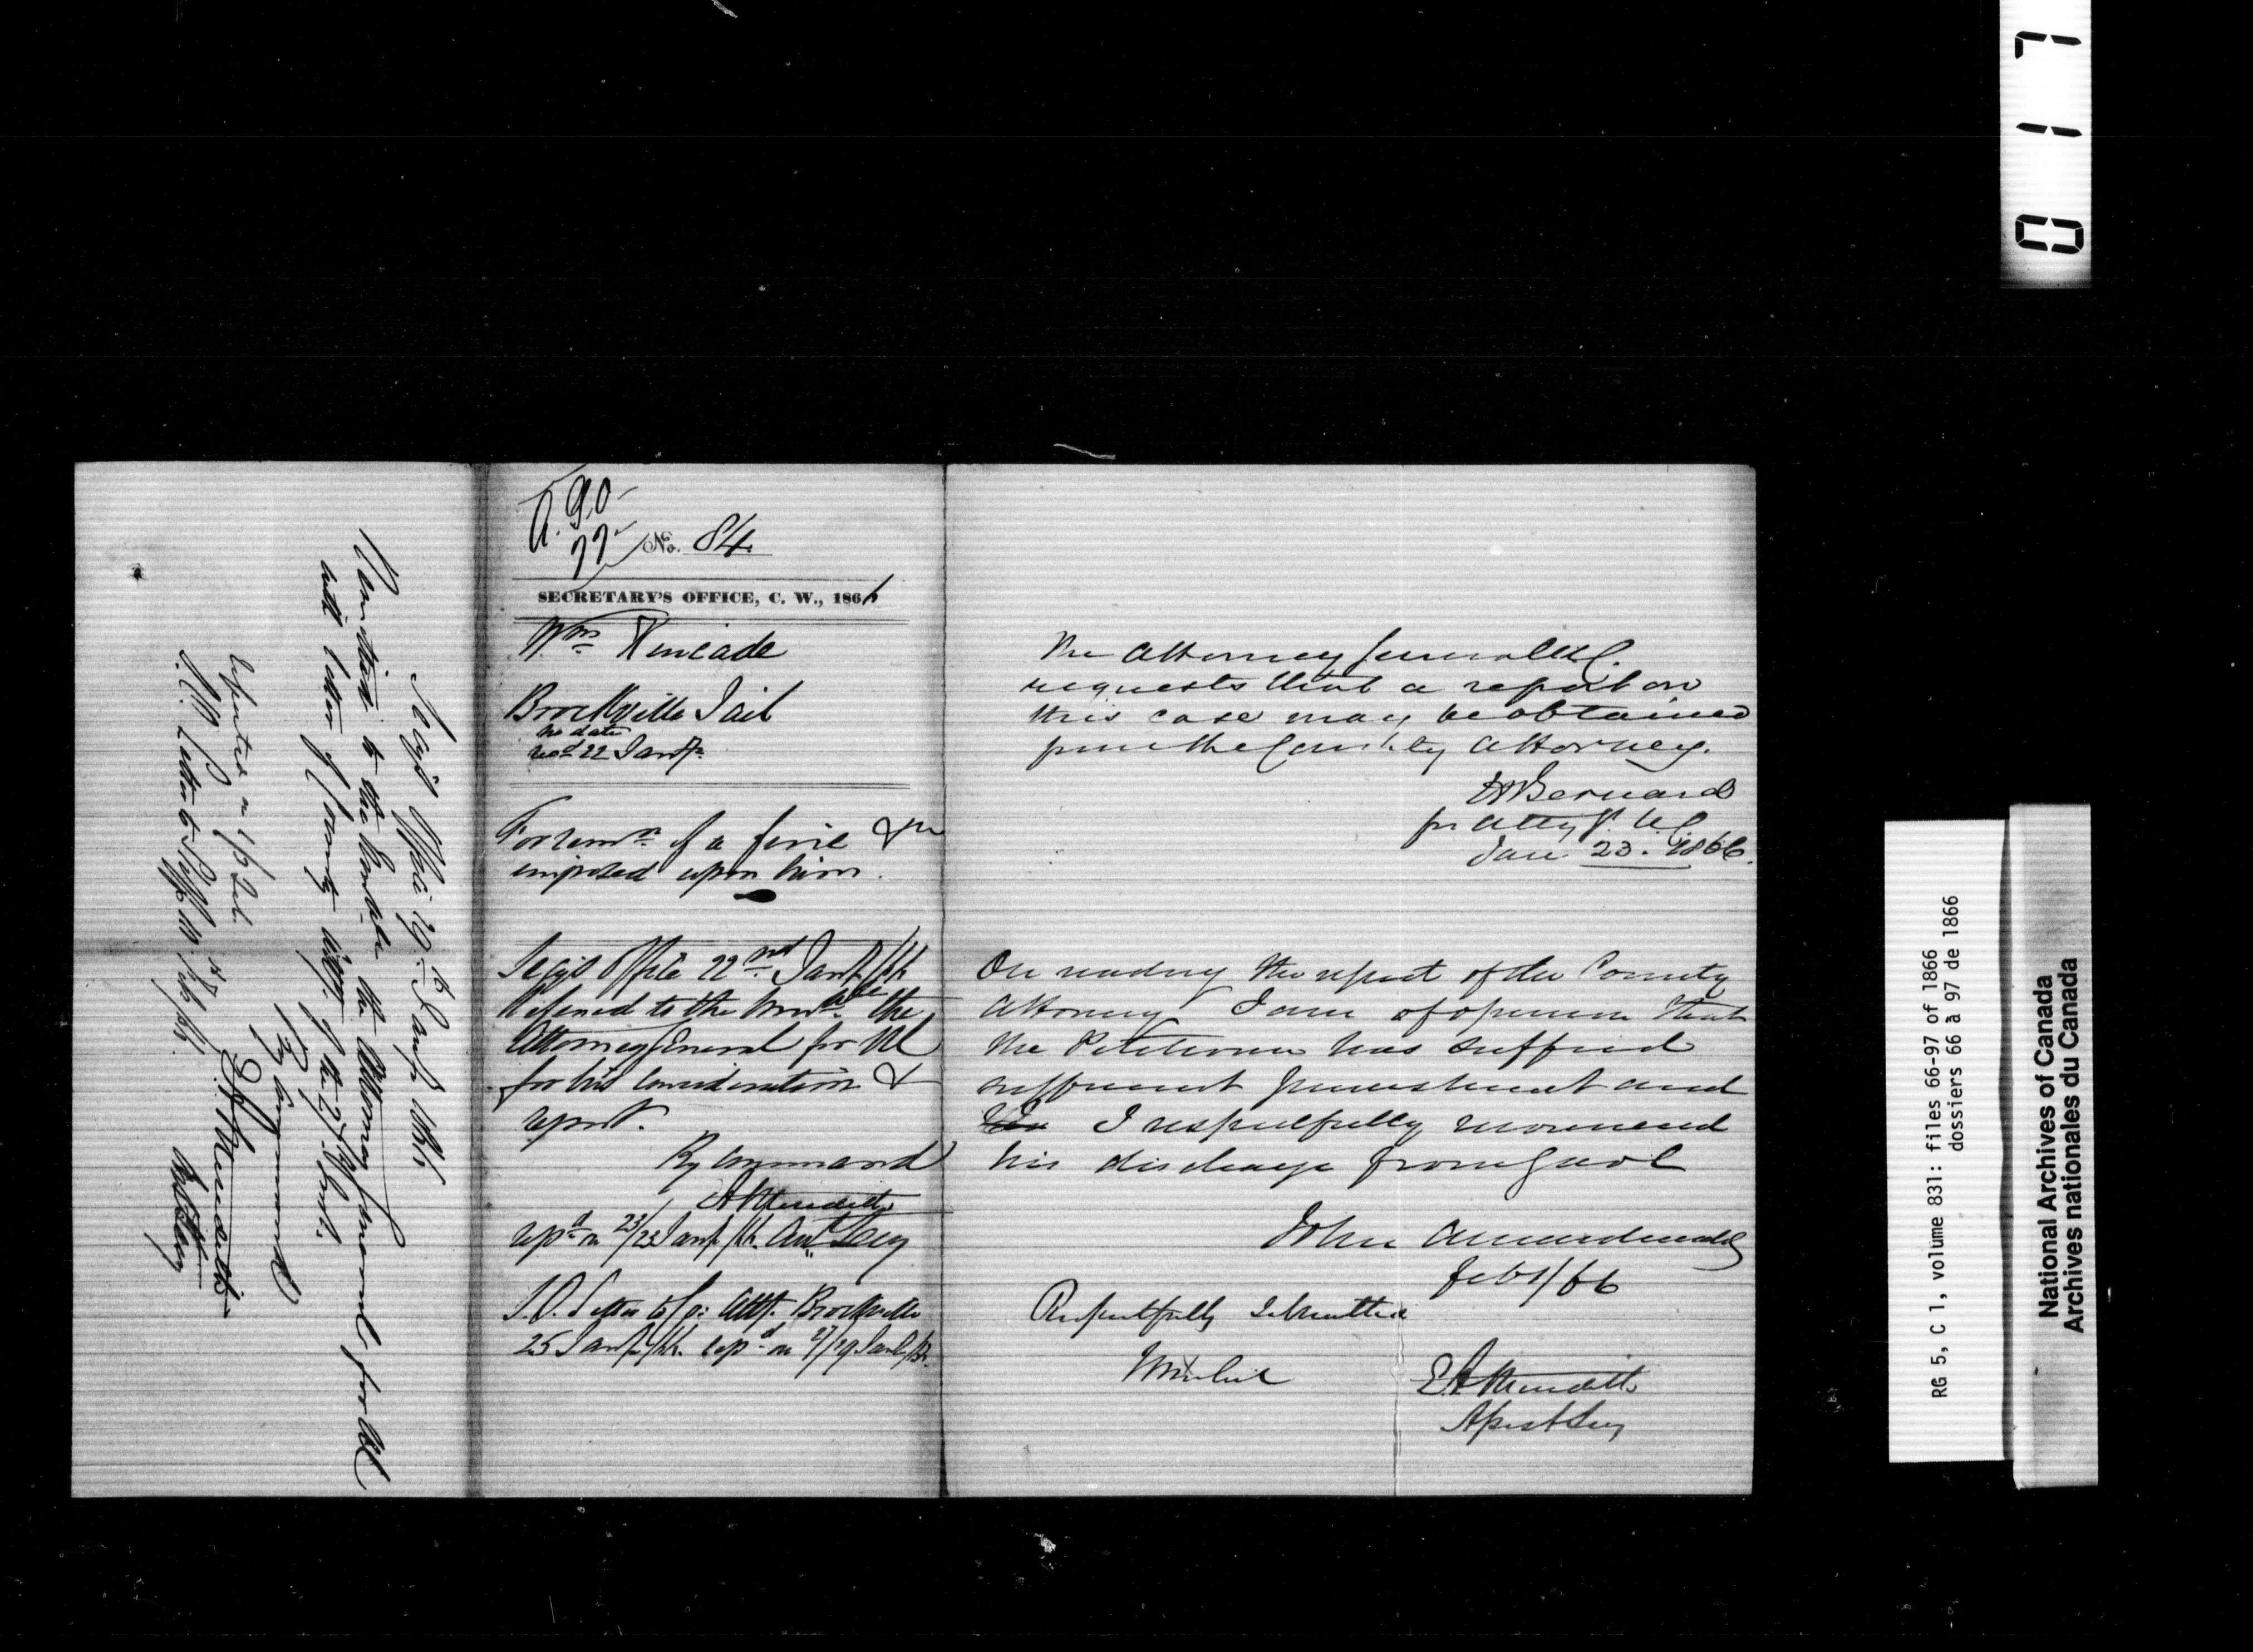 A.G.O
77
No. 84.
SECRETARY'S OFFICE, C. W., 1866
Wm Kincade
Brockville Jail
no date
recd 22 Jany
For remn of a fine &c
imposed upon him.
Secy's Office 22nd Jany /66
Refered to the Honable the
Attorney General for UC
for his consideration &
report.
By command
EA Meredith
Asst Secy
repd on 23/23 Jany /66.
S.O. Letter to Co: Atty. Brockville
25 Jany /66. repd on 27/29 Jany
Secy's Office 29th Jany 1866
to the Honorable the Attorney General for UC
with letter of County Atty of the 27th Inst.
By command
EA Meredith
Asst Secy
Reported on 1/2 Feb.
S.O. Letter to Sheff
The Attorney General U.C.
requests that a report on
this case may be obtained
from the County Attorney.
H Bernard
for Atty Gl. UC
Jan 23. 1866.
On reading the report of the County
Attorney I am of opinion that
the Petitioner has suffered
sufficient punishment and
I respectfully recommend
his discharge from Gaol
John A Macdonald
Feb 1/66
Respectfully Submitted
EA Meredith
Asst Secy
0117
RG 5, C 1, volume 831: files 66-97 of 1866
dossiers 66 à 97 de 1866
National Archives of Canada
Archives nationales du Canada